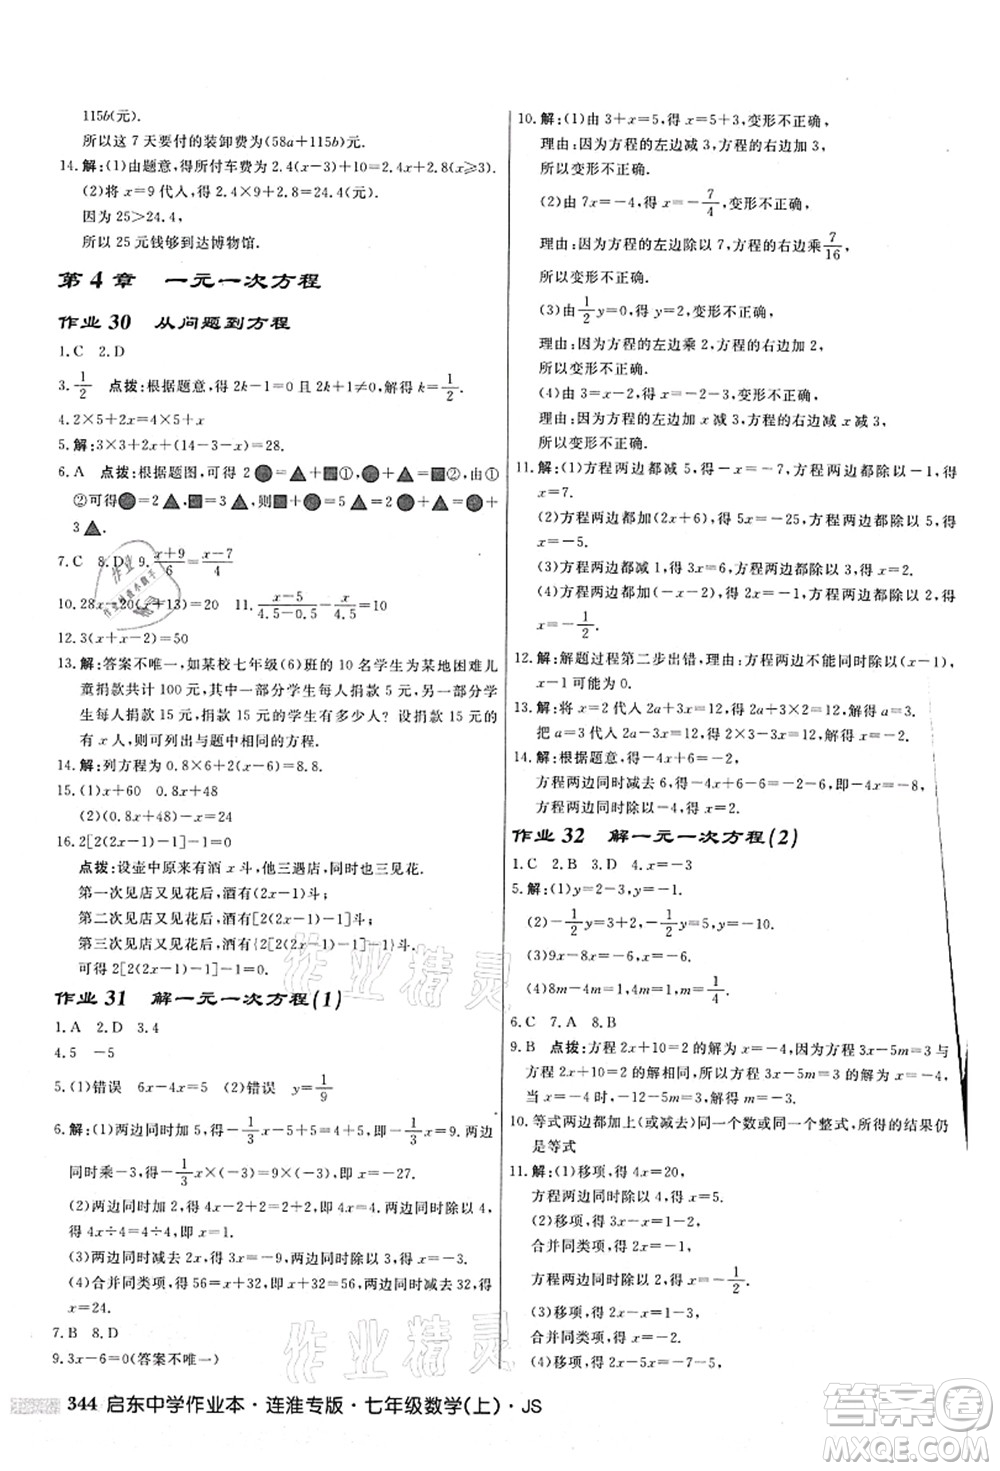 115b(元).
所以这 7 天要付的装卸费为(58a+115b)元.
14.解:(1)由题意,得所付车费为 2.4(x-3)+10=2.4x+2.8(x≥3).
(2)将 x=9 代入,得 2.4×9+2.8=24.4(元).
因为 25>24.4,
所以 25 元钱够到达博物馆.
第 4 章 一元一次方程
作业 30 从问题到方程
1.C 2.D
3.1/2 点拨:根据题意,得 2k-1=0 且 k-1≠0,解得 k=1/2.
4.2×5+2x=4×5+x
5.解:3×3+2x+(14-3-x)=28.
6.A 点拨:根据题图,可得 2●=▲+■①,●+▲=■②,由①
②可得●=2▲,■=3▲,则■+●=2●+▲=●+●+▲=●+
3▲.
7.C 8.D 9.(x+9)/6=(x-7)/4
10.28x-20(x+13)=20 11.(x-5)/(4.5-0.5)-x/4.5=10
12.3(x+x-2)=50
13.解:答案不唯一,如某校七年级(6)班的 10 名学生为某地困难儿
童捐款共计 100 元,其中一部分学生每人捐款 5 元,另一部分学
生每人捐款 15 元,捐款 15 元的学生有多少人? 设捐款 15 元的
有 x 人,则可列出与题中相同的方程.
14.解:列方程为 0.8×6+2x=8.8.
15.(1)x+60 0.8x+48
(2)(0.8x+48)-x=24
16.2[2(2x-1)-1]-1=0
点拨:设壶中原来有酒 x 斗,三遇店,同时也三见花.
第一次见店又见花后,酒有(2x-1)斗;
第二次见店又见花后,酒有[2(2x-1)-1]斗;
第三次见店又见花后,酒有{2[2(2x-1)-1]-1}斗.
可得 2[2(2x-1)-1]-1=0.
作业 31 解一元一次方程(1)
1.A 2.D 3.4
4.5 -5
5.(1)错误 6x-4x=5 (2)错误 y=1/9
6.解:(1)两边同时减去 5,得-1/3x-5+5=4+5,即-1/3x=9.两边
同时乘-3,得-1/3x×(-3)=9×(-3),即 x=-27.
(2)两边同时加上 2,得 4x-2+2=2+2,即 4x=4.两边同时除以
4,得 4x÷4=4÷4,即 x=1.
(3)两边同时减去 2x,得 3x-2x=2x-1-2x,即 x=-1.
(4)合并同类项,得 56=x+32,即 x+32=56,两边同时减去 32,得
x=24.
7.B 8.D
9.3x-6=0(答案不唯一)
344 启东中学作业本·连淮专版·七年级数学(上)·JS
10.解:(1)由 3+x=5,得 x=5+3,变形不正确.
理由:因为方程的左边减 3,方程的右边加 3,
所以变形不正确.
(2)由 7x=-4,得 x=-7/4,变形不正确.
理由:因为方程的左边除以 7,方程的右边乘7/16,
所以变形不正确.
(3)由1/2y=0,得 y=2,变形不正确.
理由:因为方程的左边乘 2,方程的右边加 2,
所以变形不正确.
(4)由 3=x-2,得 x=-2-3,变形不正确.
理由:因为方程的左边加 x 减 3,方程的右边减 x 减 3,
所以变形不正确.
11.解:(1)方程两边都减 3,得-x=-7,方程两边都除以-1,得
x=7.
(2)方程两边都加(2x+6),得 5x=-25,方程两边都除以 5,得
x=-5.
(3)方程两边都减1/3,得-2x=1,方程两边都除以-2,得 x=
-1/2.
12.解:解题过程第二步出错,理由:方程两边不能同时除以(x-1),
x-1 可能为 0.
13.解:将 x=2 代入 2a+3x=12,得 2a+3×2=12,解得 a=3.
把 a=3 代入 2x+3a=12,得 2×3+3x=12,解得 x=2.
14.解:根据题意,得-4x+6=-2,
方程两边同时减去 6,得-4x+6-6=-2-6,即-4x=-8,
方程两边同时除以-4,得 x=2.
作业 32 解一元一次方程(2)
1.C 2.B 3.D 4.x=-3
5.解:(1)y=2-3,y=-1.
(2)-1/2y=3+2,-1/2y=5,y=-10.
(3)6x-5x=-1,x=-1.
(4)8m-4m=1,4m=1,m=1/4.
6.C 7.A 8.B
9.B 点拨:方程 2x+10=2 的解为 x=-4,因为方程 3x-5m=3 与
方程 2x+10=2 的解相同,所以方程 3x-5m=3 的解为 x=-4,
当 x=-4 时,-12-5m=3,解得 m=-3.
10.等式两边都加上(或减去)同一个数或同一个整式,所得的结果仍
是等式
11.解:(1)移项,得 4x=20,
方程两边同时除以 4,得 x=5.
(2)移项,得 x+x=1-2,
合并同类项,得 2x=-1,
方程两边同时除以 2,得 x=-1/2.
(3)移项,得 2x-3x=-5-1,
合并同类项,得-x=-6,
方程两边同时除以-1,得 x=6.
作业精灵
作业精灵
答案圈
MXQE.COM